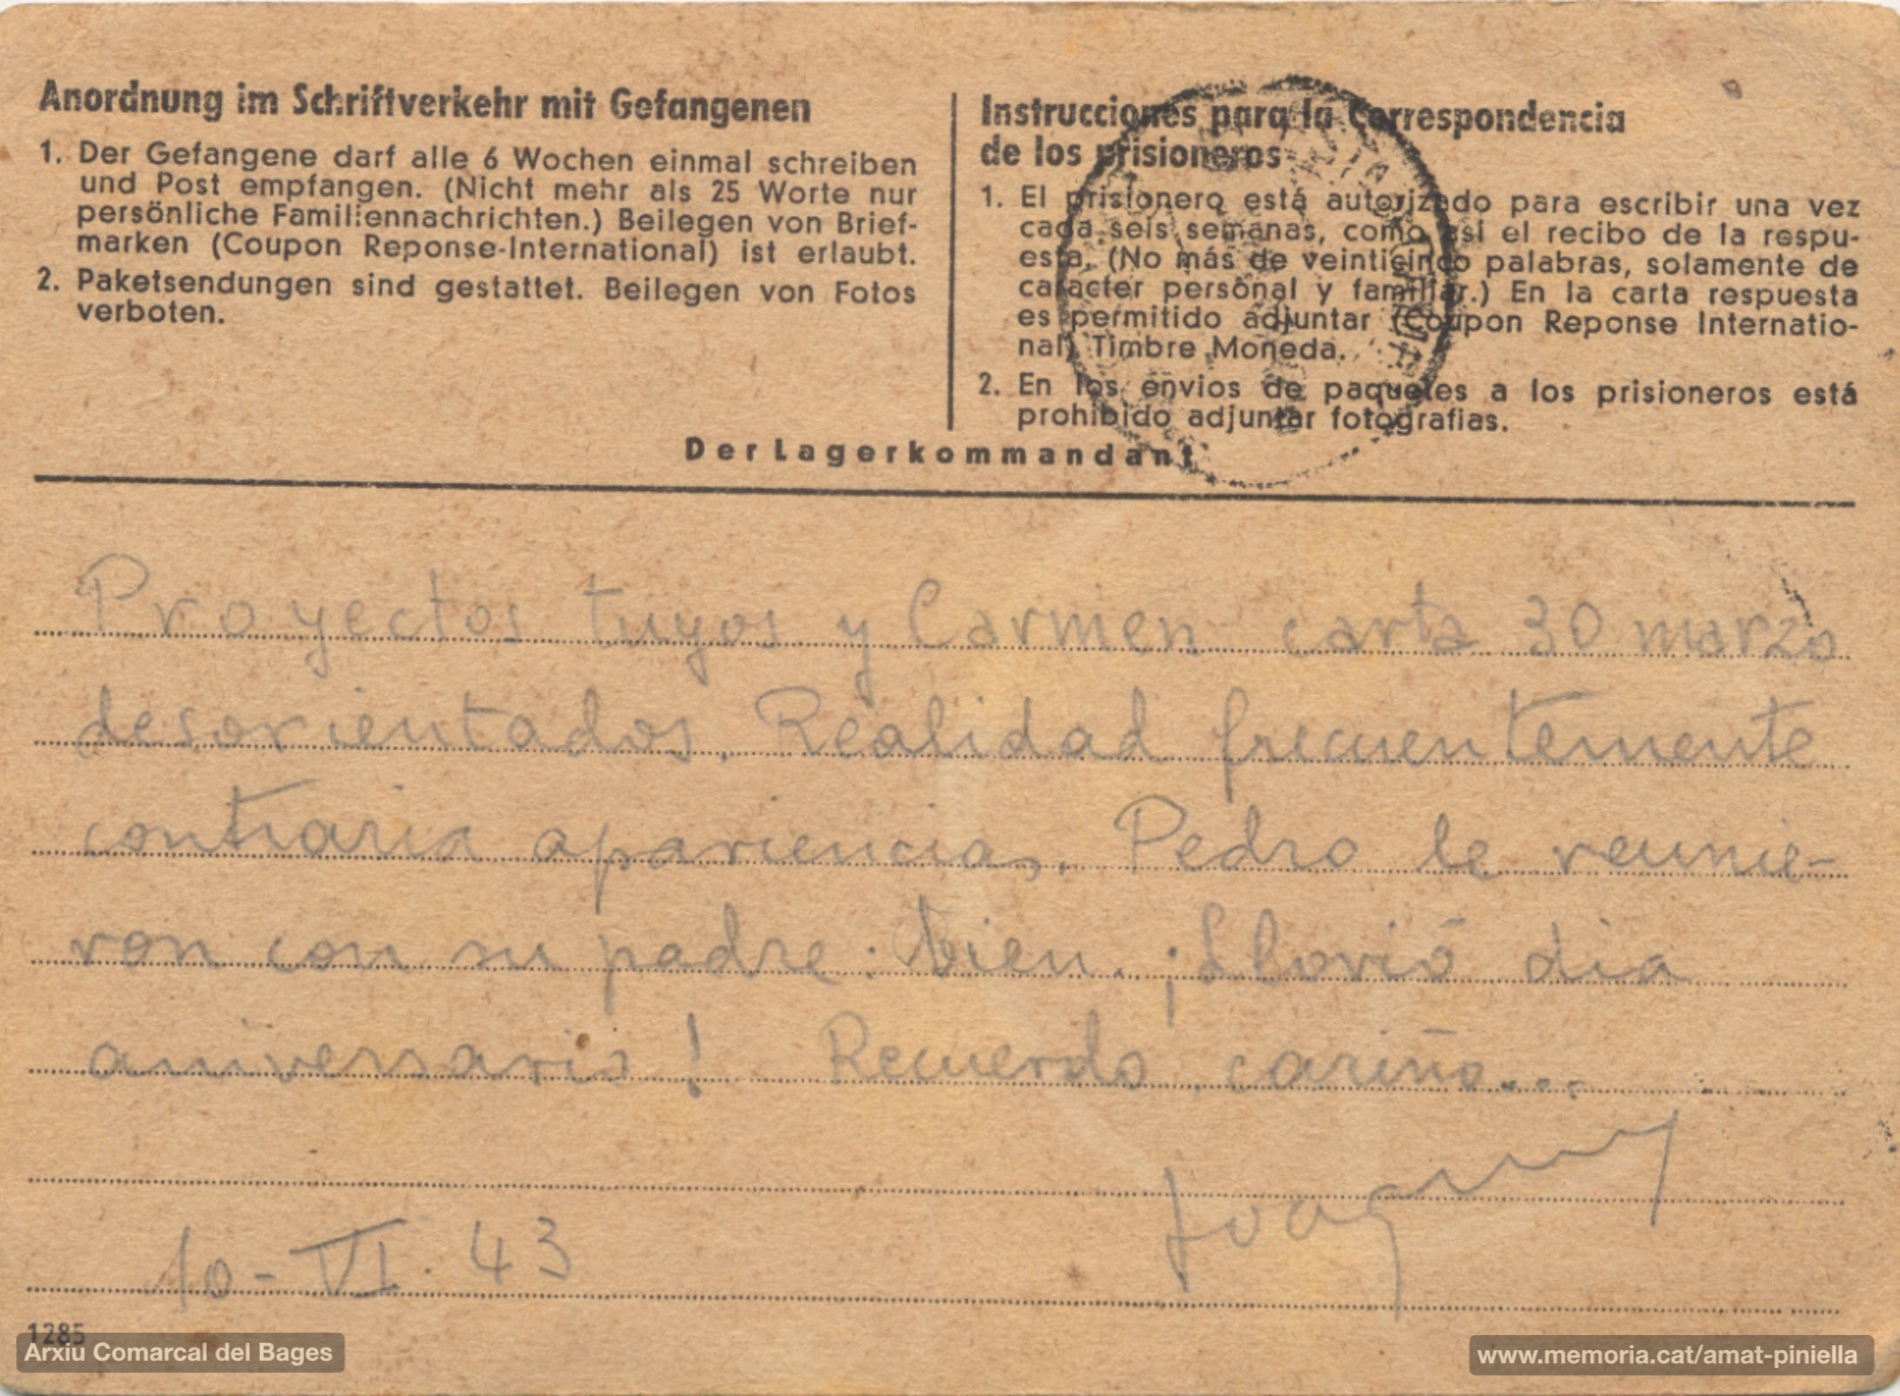 Anordnung im Schriftverkehr mit Gefangenen
1. Der Gefangene darf alle 6 Wochen einmal schreiben
und Post empfangen. (Nicht mehr als 25 Worte nur
persönliche Familiennachrichten.) Beilegen von Brief-
marken (Coupon Reponse-International) ist erlaubt.
2. Paketsendungen sind gestattet. Beilegen von Fotos
verboten.
Instrucciones para la Correspondencia
de los prisioneros
1. El prisionero está autorizado para escribir una vez
cada seis semanas, como asi el recibo de la respu-
esta. (No más de veinticinco palabras, solamente de
caracter persönal y familiar.) En la carta respuesta
es permitido adjuntar (Coupon Reponse Internatio-
nal) Timbre Moneda.
2. En los envios de paquetes a los prisioneros está
prohibido adjuntar fotografias.
Der Lagerkommandant
Proyectos tuyos y Carmen carta 30 marzo
desorientados. Realidad frecuentemente
contraria apariencias. Pedro le reunie-
ron con su padre: bien. ¡Llovió dia
aniversario! Recuerdo cariño...
Joaquim
10-VI.43
1285
Arxiu Comarcal del Bages
www.memoria.cat/amat-piniella